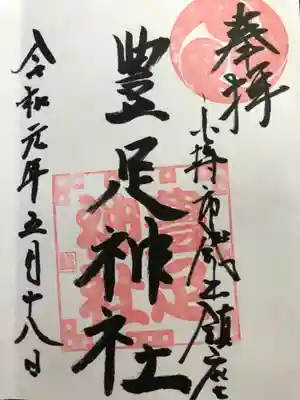 奉拝
小樽市銭函鎮座
豊足神社
令和元年五月十八日
豊足
神社